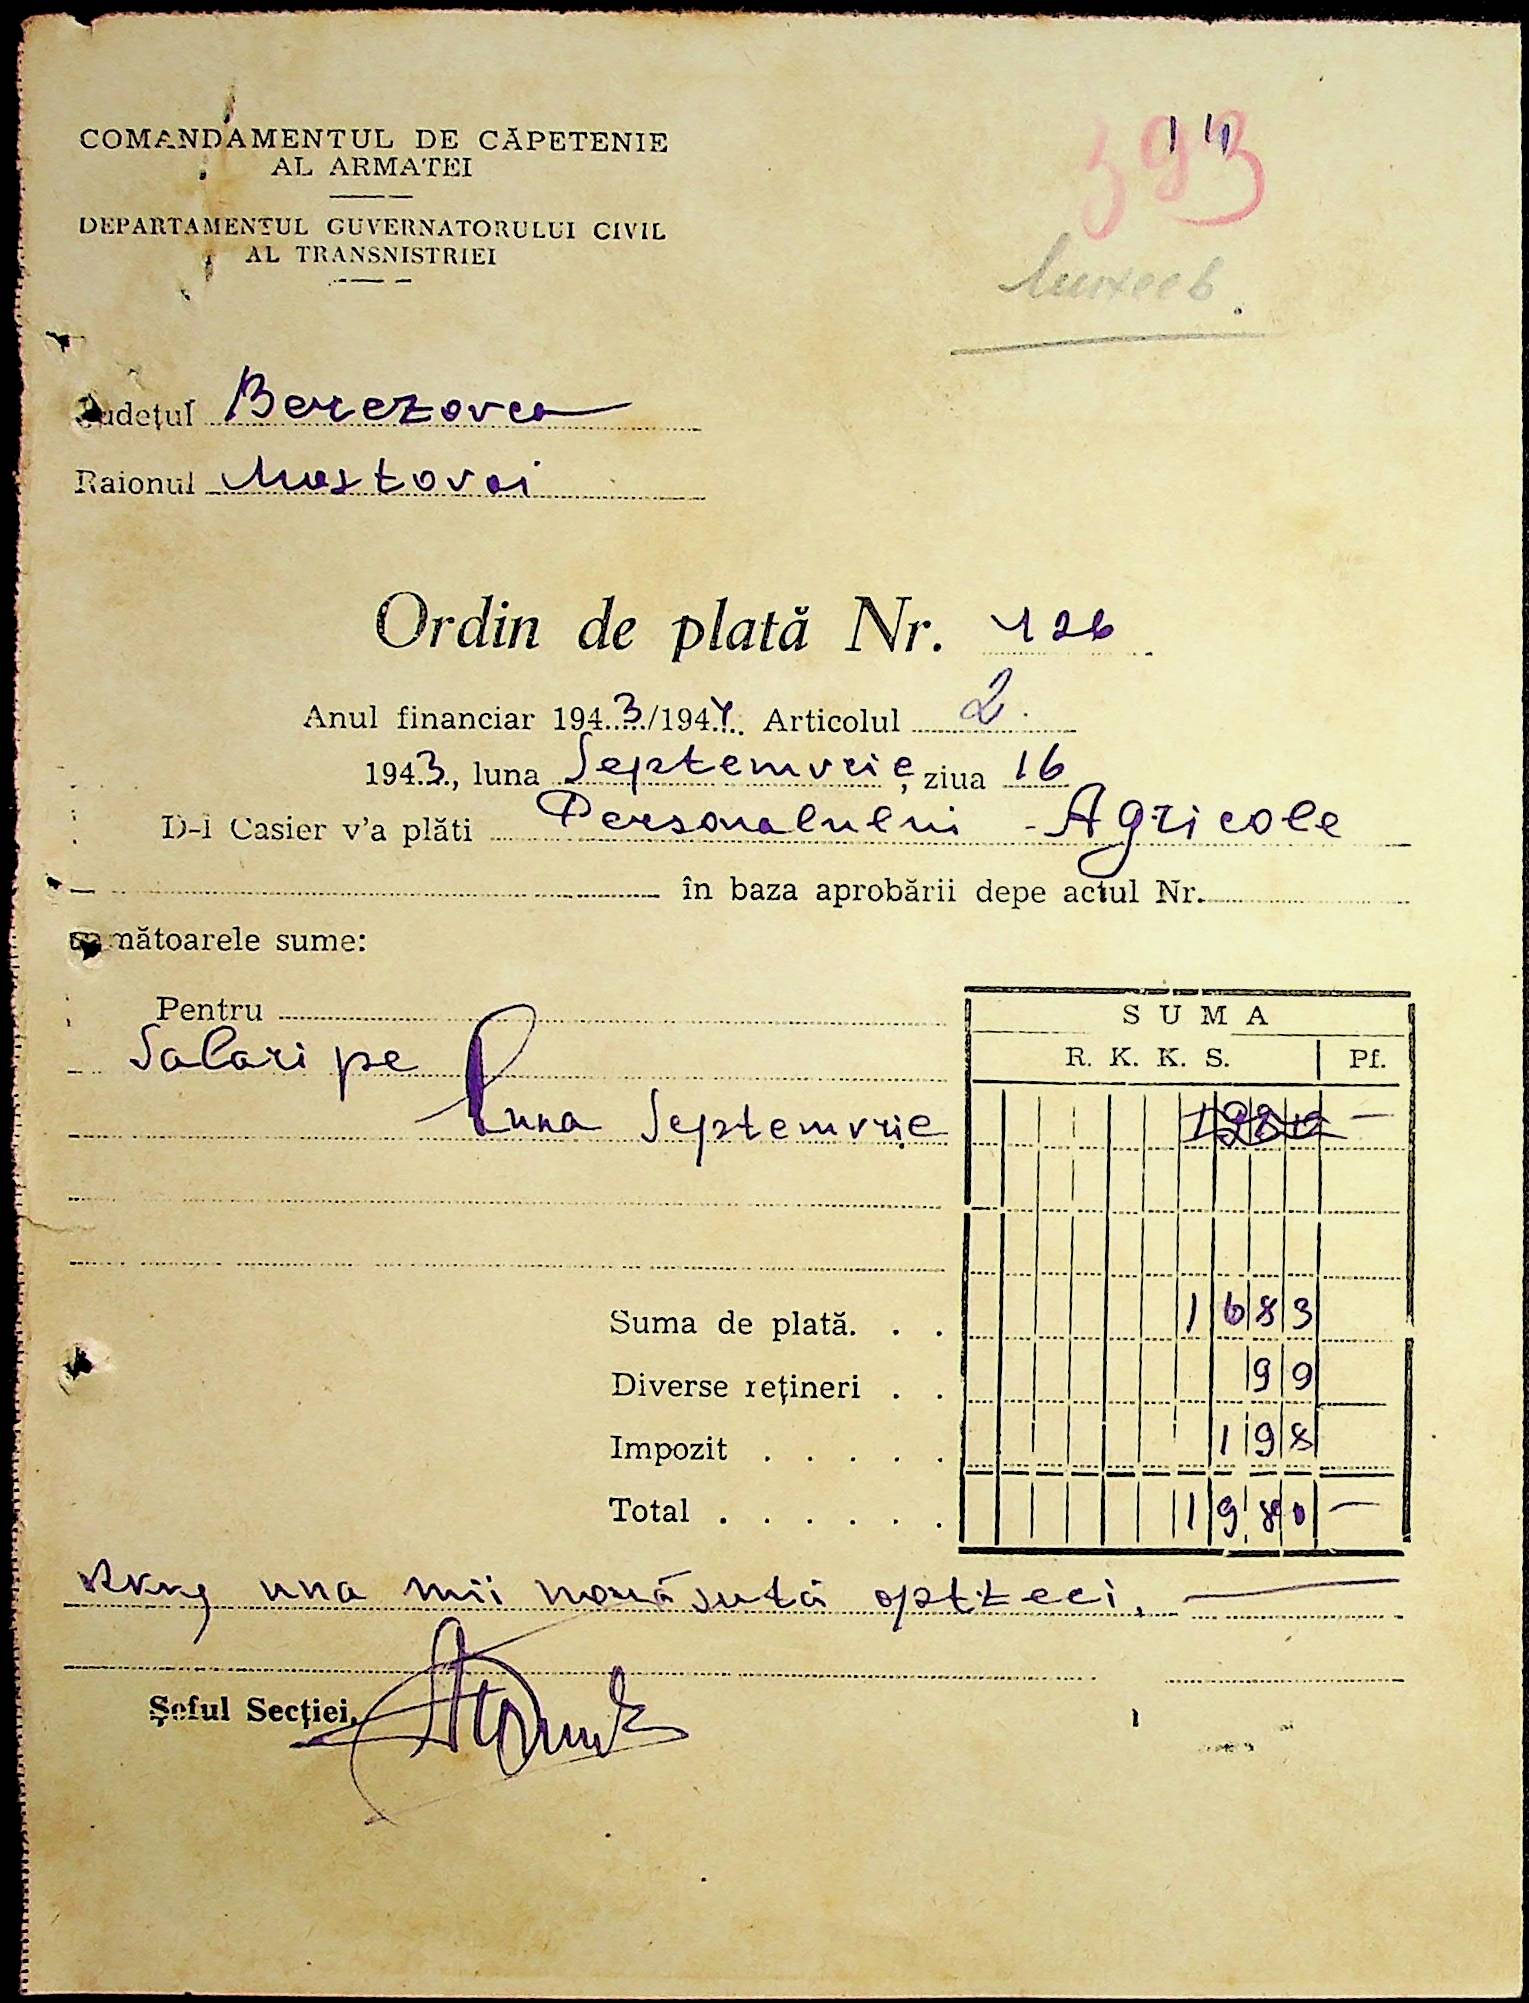 COMANDAMENTUL DE CĂPETENIE
AL ARMATEI
DEPARTAMENTUL GUVERNATORULUI CIVIL
AL TRANSNISTRIEI
393
14
Михеев
Județul Berezovca
Raionul Mostovoi
Ordin de plată Nr. 126
Anul financiar 1943/1944. Articolul 2.
1943., luna Septemvrie, ziua 16
D-l Casier v'a plăti Personalului - Agricole
în baza aprobării depe actul Nr.
următoarele sume:
Pentru
Salari pe
Luna Septemvrie
SUMA
R. K. K. S. Pf.
1980 —
Suma de plată. . . 1683
Diverse rețineri . . 99
Impozit . . . . . 198
Total . . . . . . 1980 —
una mii nouăsută optzeci. —
Șeful Secției,